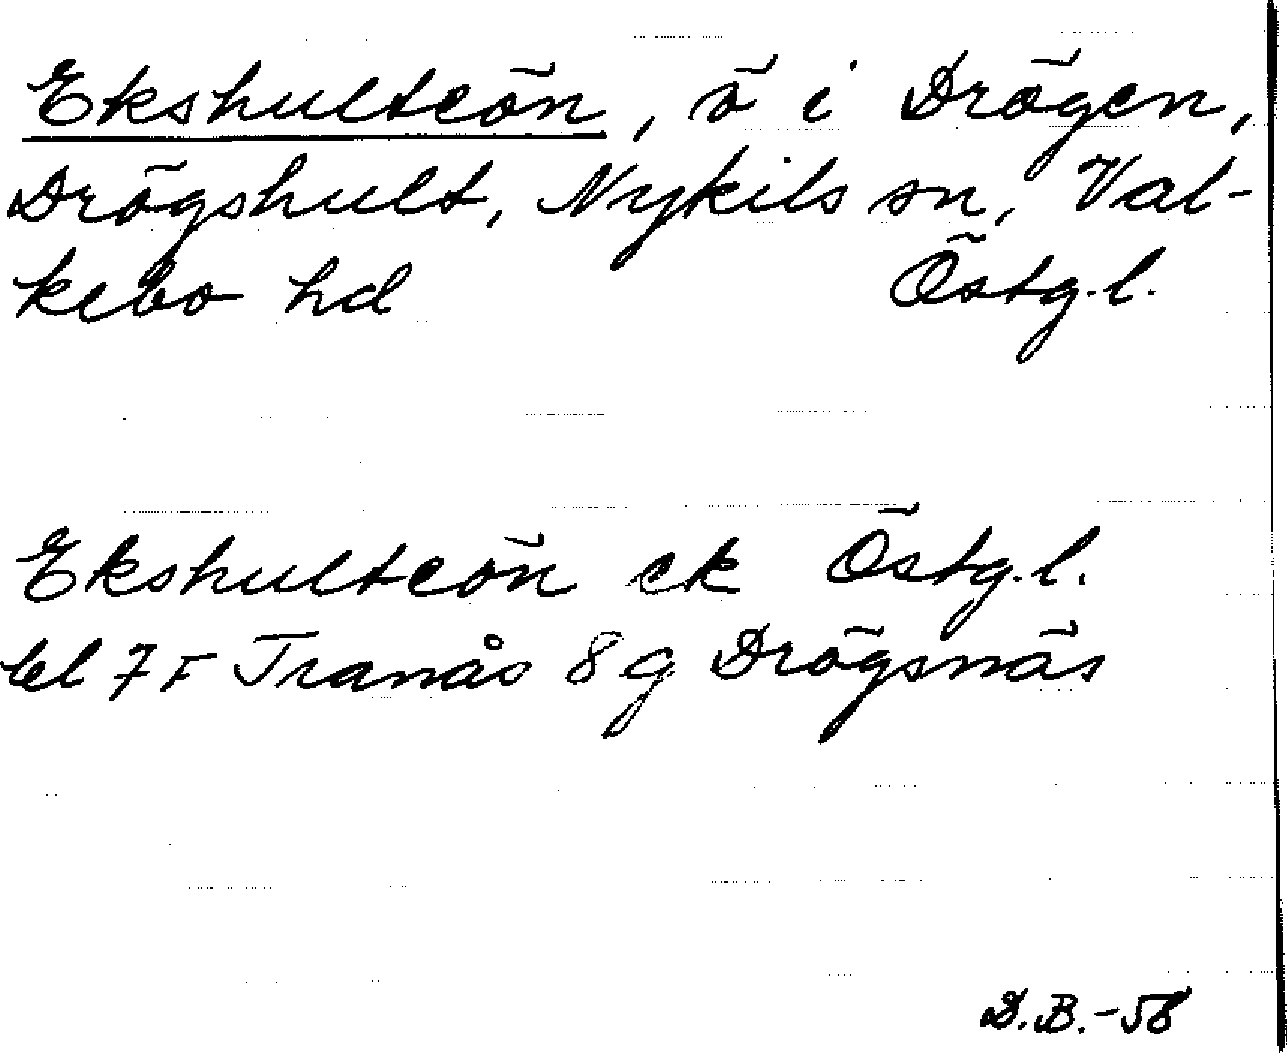 Ekshulteön, ö i Drögen,
Drögshult, Nykils sn, Val-
kebo hd Östg.l.
Ekshulteön ek Östg.l.
bl 7F Tranås 8g Drögsnäs
D.B.-58